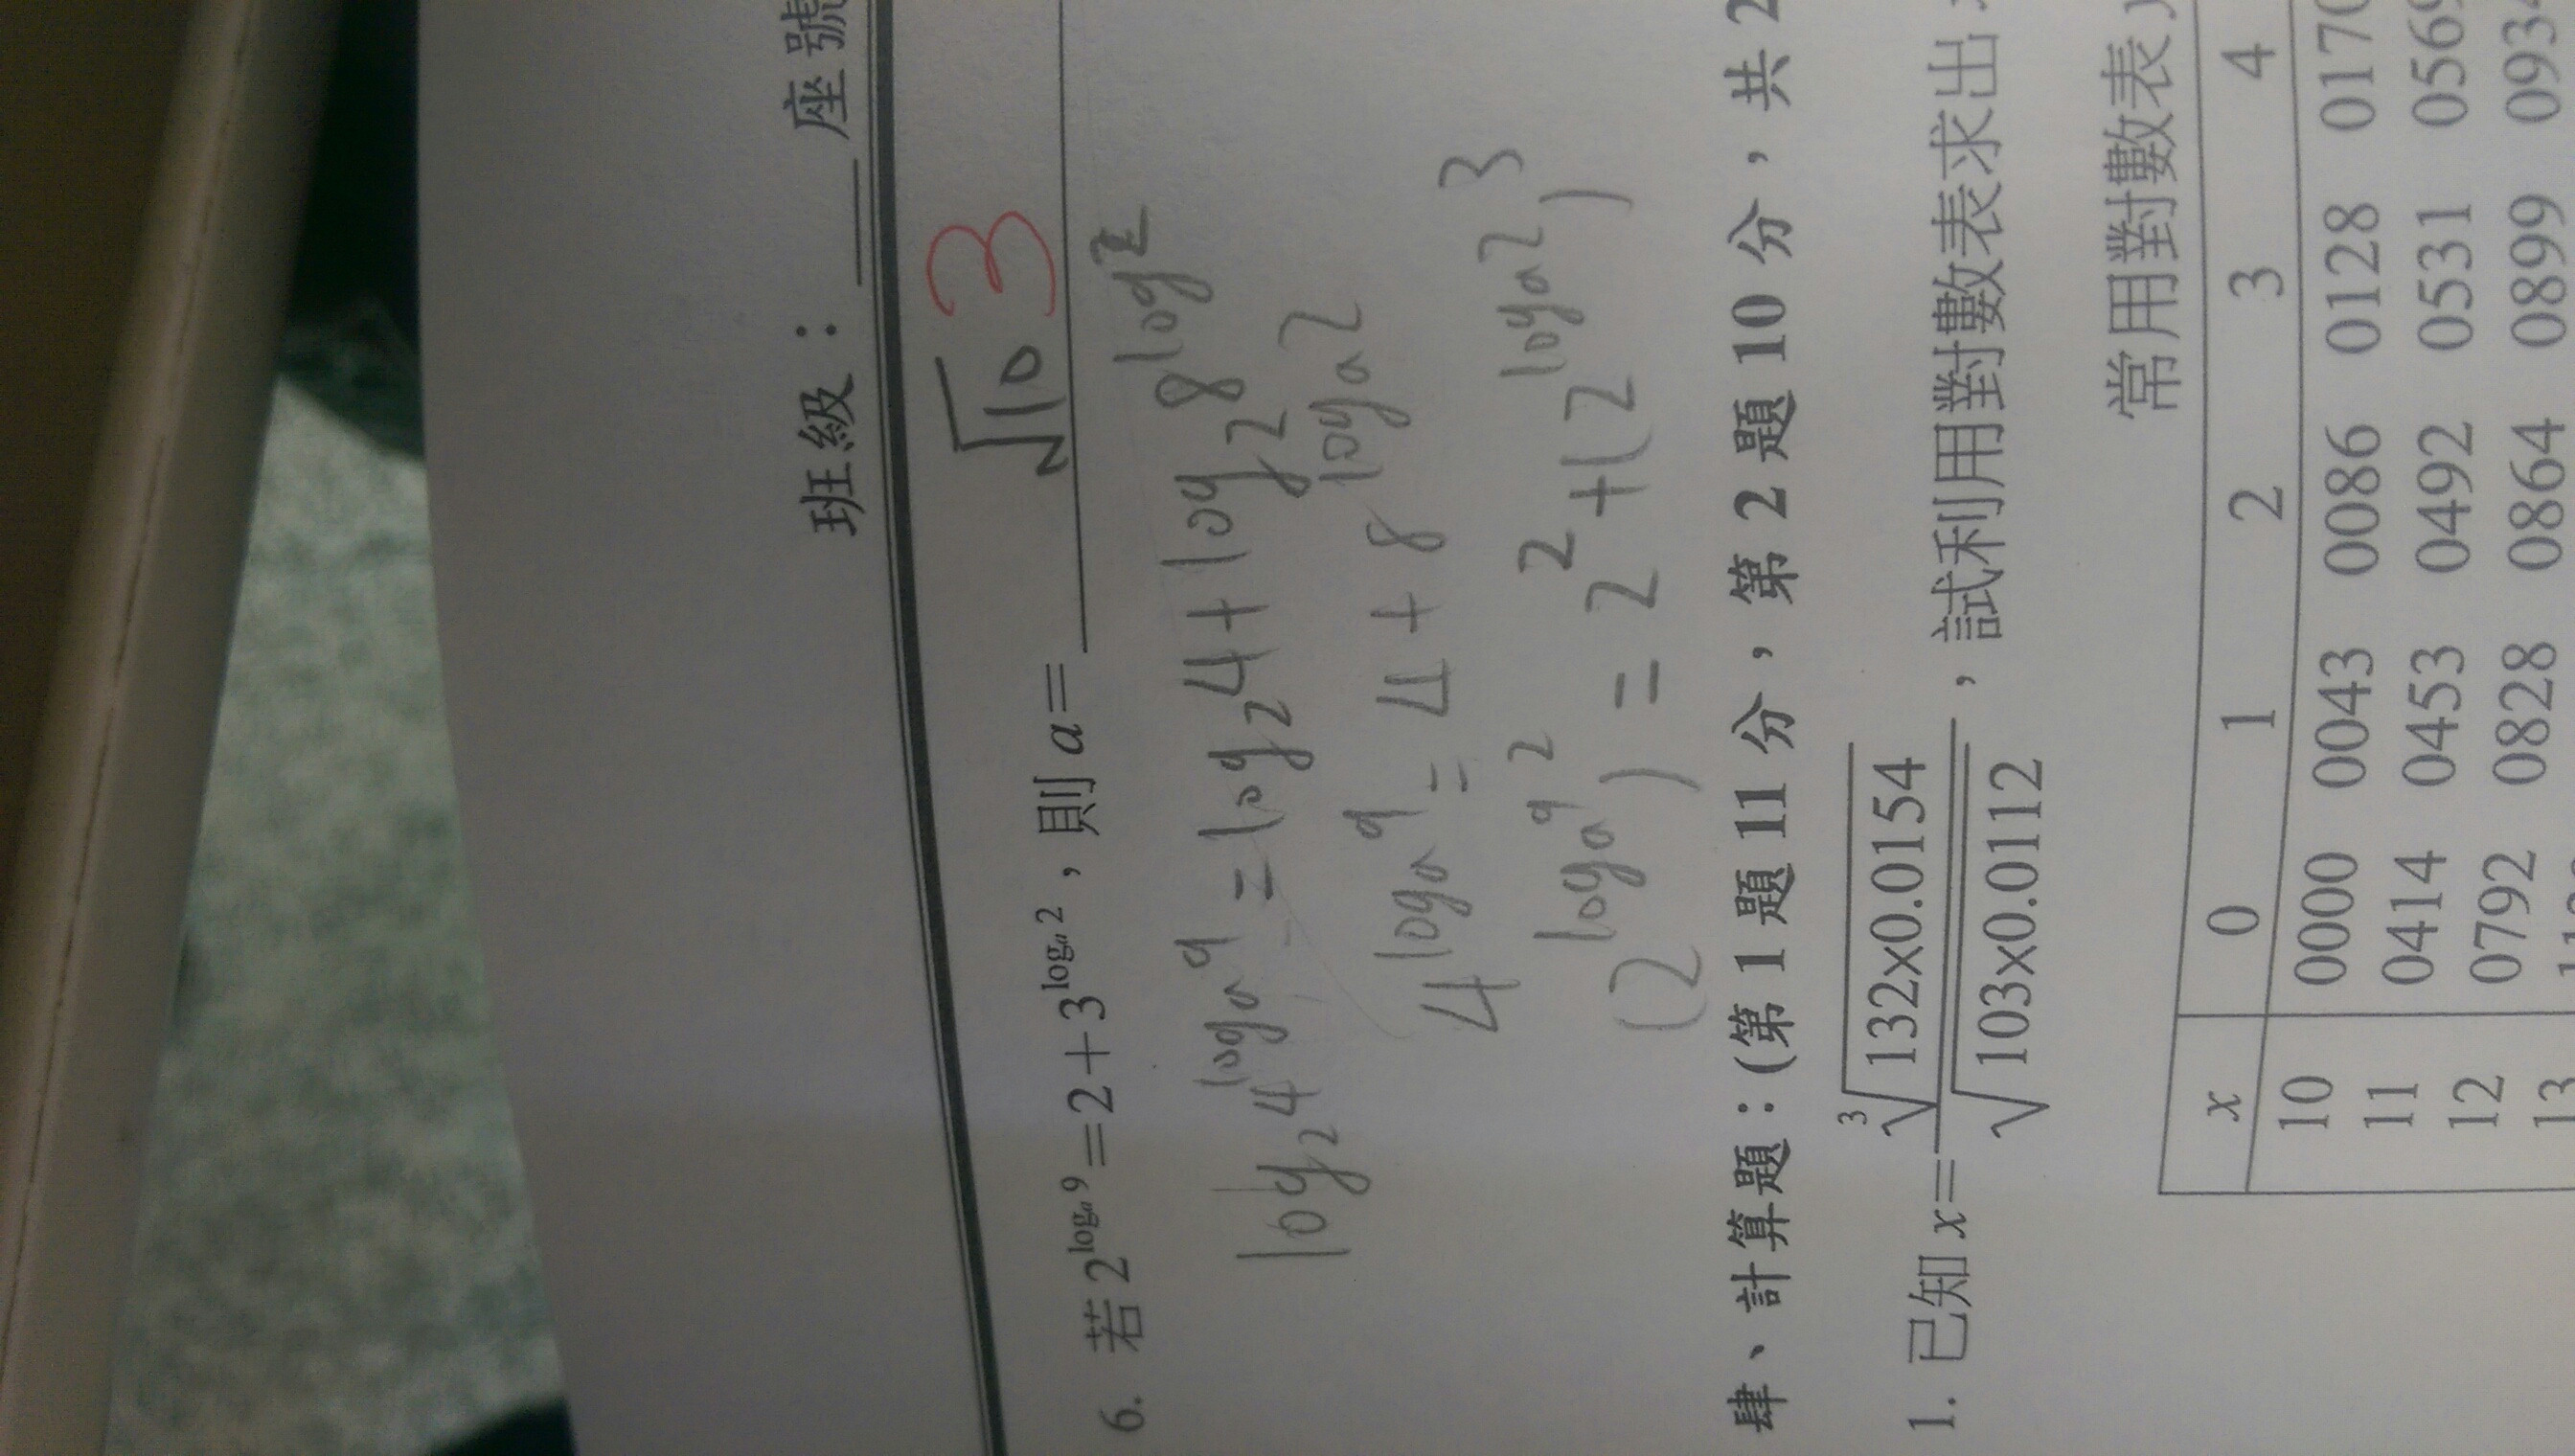 班級：　　座號
6. 若 2^{logₐ9}=2+3^{logₐ2}，則 a=　√10 3
log₂4^{logₐ9}=log₂4+log₂8^{log2}
4^{logₐ9}=4+8^{logₐ2}
(2^{logₐ9})²=2²+(2^{logₐ2})³
肆、計算題：(第 1 題 11 分，第 2 題 10 分，共 2
1. 已知 x=∛(132x0.0154)/√(103x0.0112)，試利用對數表求出
常用對數表 y
x 0 1 2 3 4
10 0000 0043 0086 0128 0170
11 0414 0453 0492 0531 0569
12 0792 0828 0864 0899 0934
13